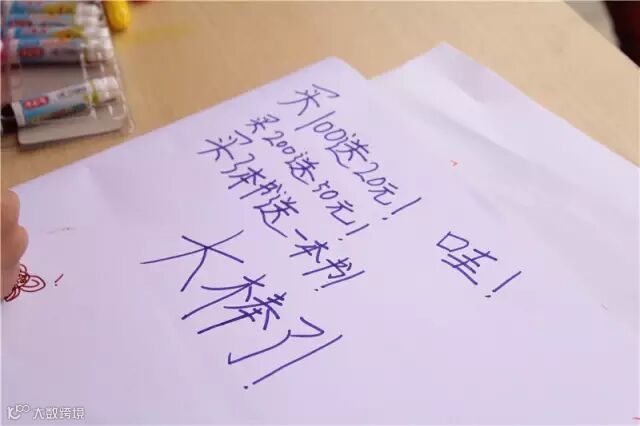 买100送20元!
买200送50元!
买3本书送一本书!
大棒了!
哇!
大数跨境